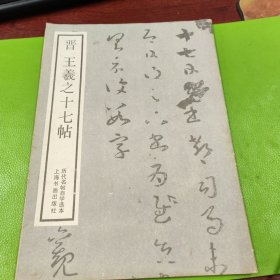 晋 王羲之十七帖
历代名帖自学选本
上海书画出版社
十七日先书郗司马未
去即日得足下书为慰先
书以具示复数字